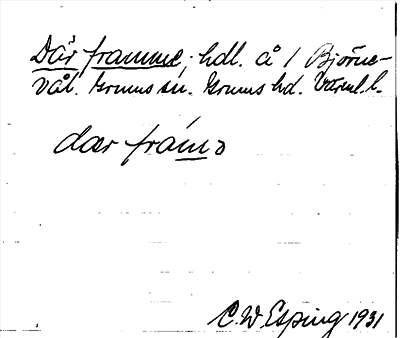 Där framme, hdl. å 1 Björne-
vål. Grums sn. Grums hd. Värml. l.
dær fram̀ɔ
C. W. Esping 1931